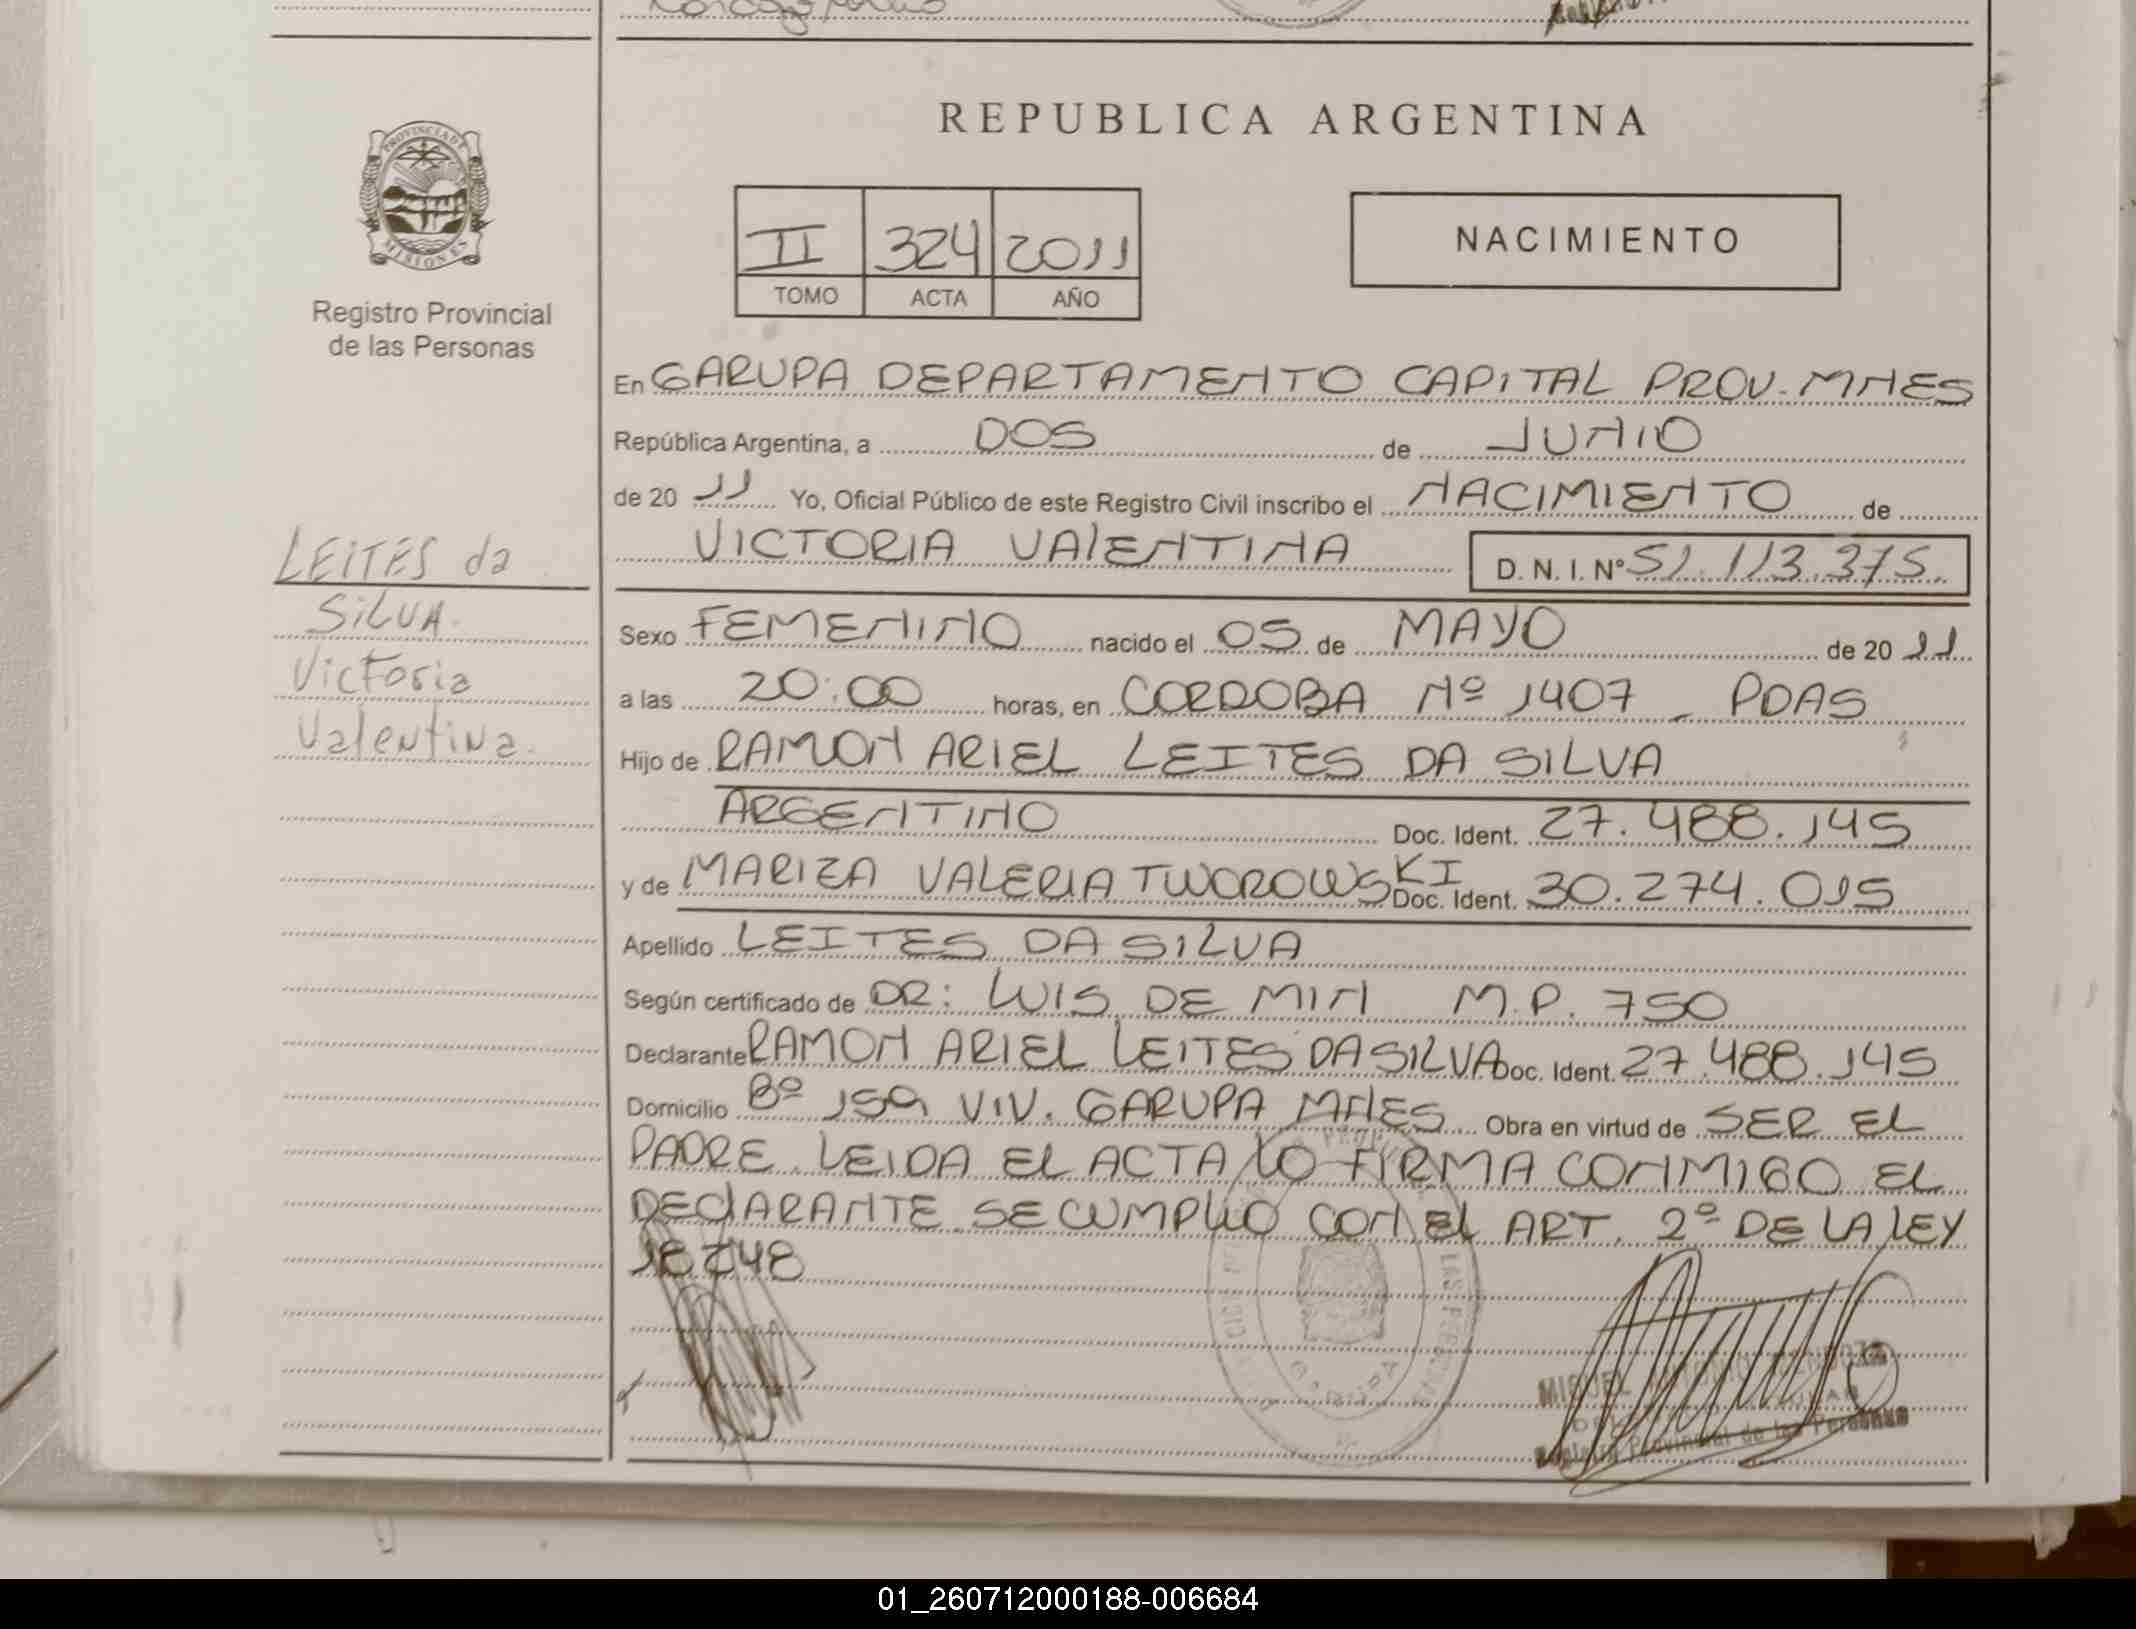 REPUBLICA ARGENTINA
PROVINCIA DE MISIONES
Registro Provincial
de las Personas
II 324 2011
TOMO ACTA AÑO
NACIMIENTO
En GARUPA DEPARTAMENTO CAPITAL PROV. MNES
República Argentina, a DOS de JUNIO
de 20 11 Yo, Oficial Público de este Registro Civil inscribo el NACIMIENTO de
VICTORIA VALENTINA D. N. I. N° 51.113.375.
LEITES da
SILVA.
Victoria
Valentina.
Sexo FEMENINO nacido el 05 de MAYO de 20 11
a las 20:00 horas, en CORDOBA Nº 1407 - PDAS
Hijo de RAMON ARIEL LEITES DA SILVA
ARGENTINO Doc. Ident. 27.488.145
y de MARIZA VALERIA TWOROWSKI Doc. Ident. 30.274.015
Apellido LEITES DA SILVA
Según certificado de DR: LUIS DE MIN M.P. 750
Declarante RAMON ARIEL LEITES DA SILVA Doc. Ident. 27.488.145
Domicilio Bº 159 VIV. GARUPA MNES Obra en virtud de SER EL
PADRE. LEIDA EL ACTA LO FIRMA CONMIGO EL
DECLARANTE. SE CUMPLIO CON EL ART. 2º DE LA LEY
18248
GARUPA
MIGUEL ANTONIO
Registro Provincial de las Personas
01_260712000188-006684